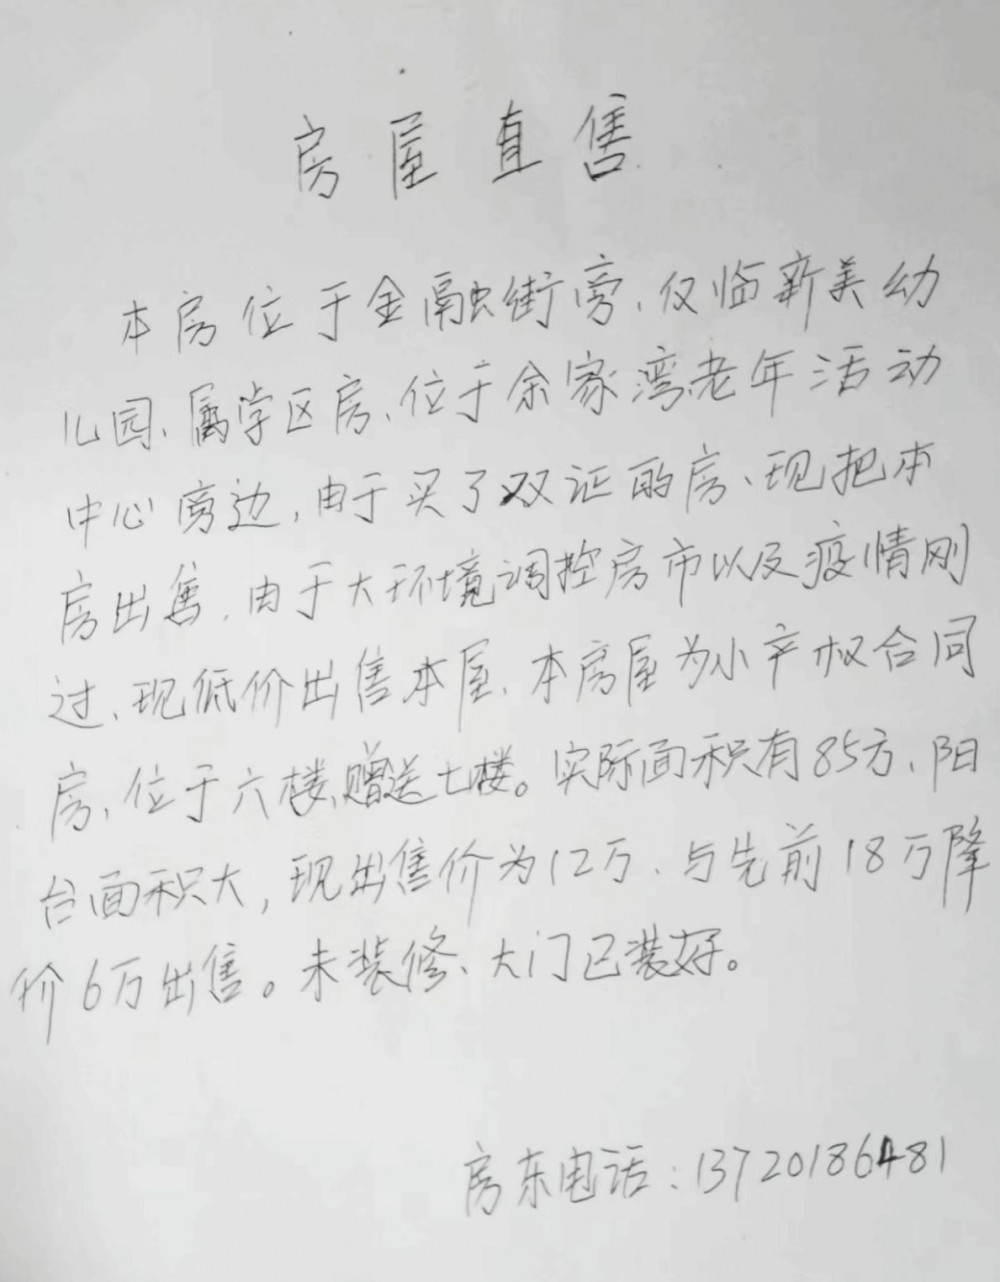 房屋直售
本房位于金融街旁、仅临新美幼
儿园、属学区房、位于余家湾老年活动
中心旁边,由于买了双证的房、现把本
房出售.由于大环境调控房市以及疫情刚
过、现低价出售本屋、本房屋为小产权合同
房、位于六楼、赠送七楼。实际面积有85方、阳
台面积大,现出售价为12万、与先前18万降
价6万出售。未装修、大门已装好。
房东电话:13720186481